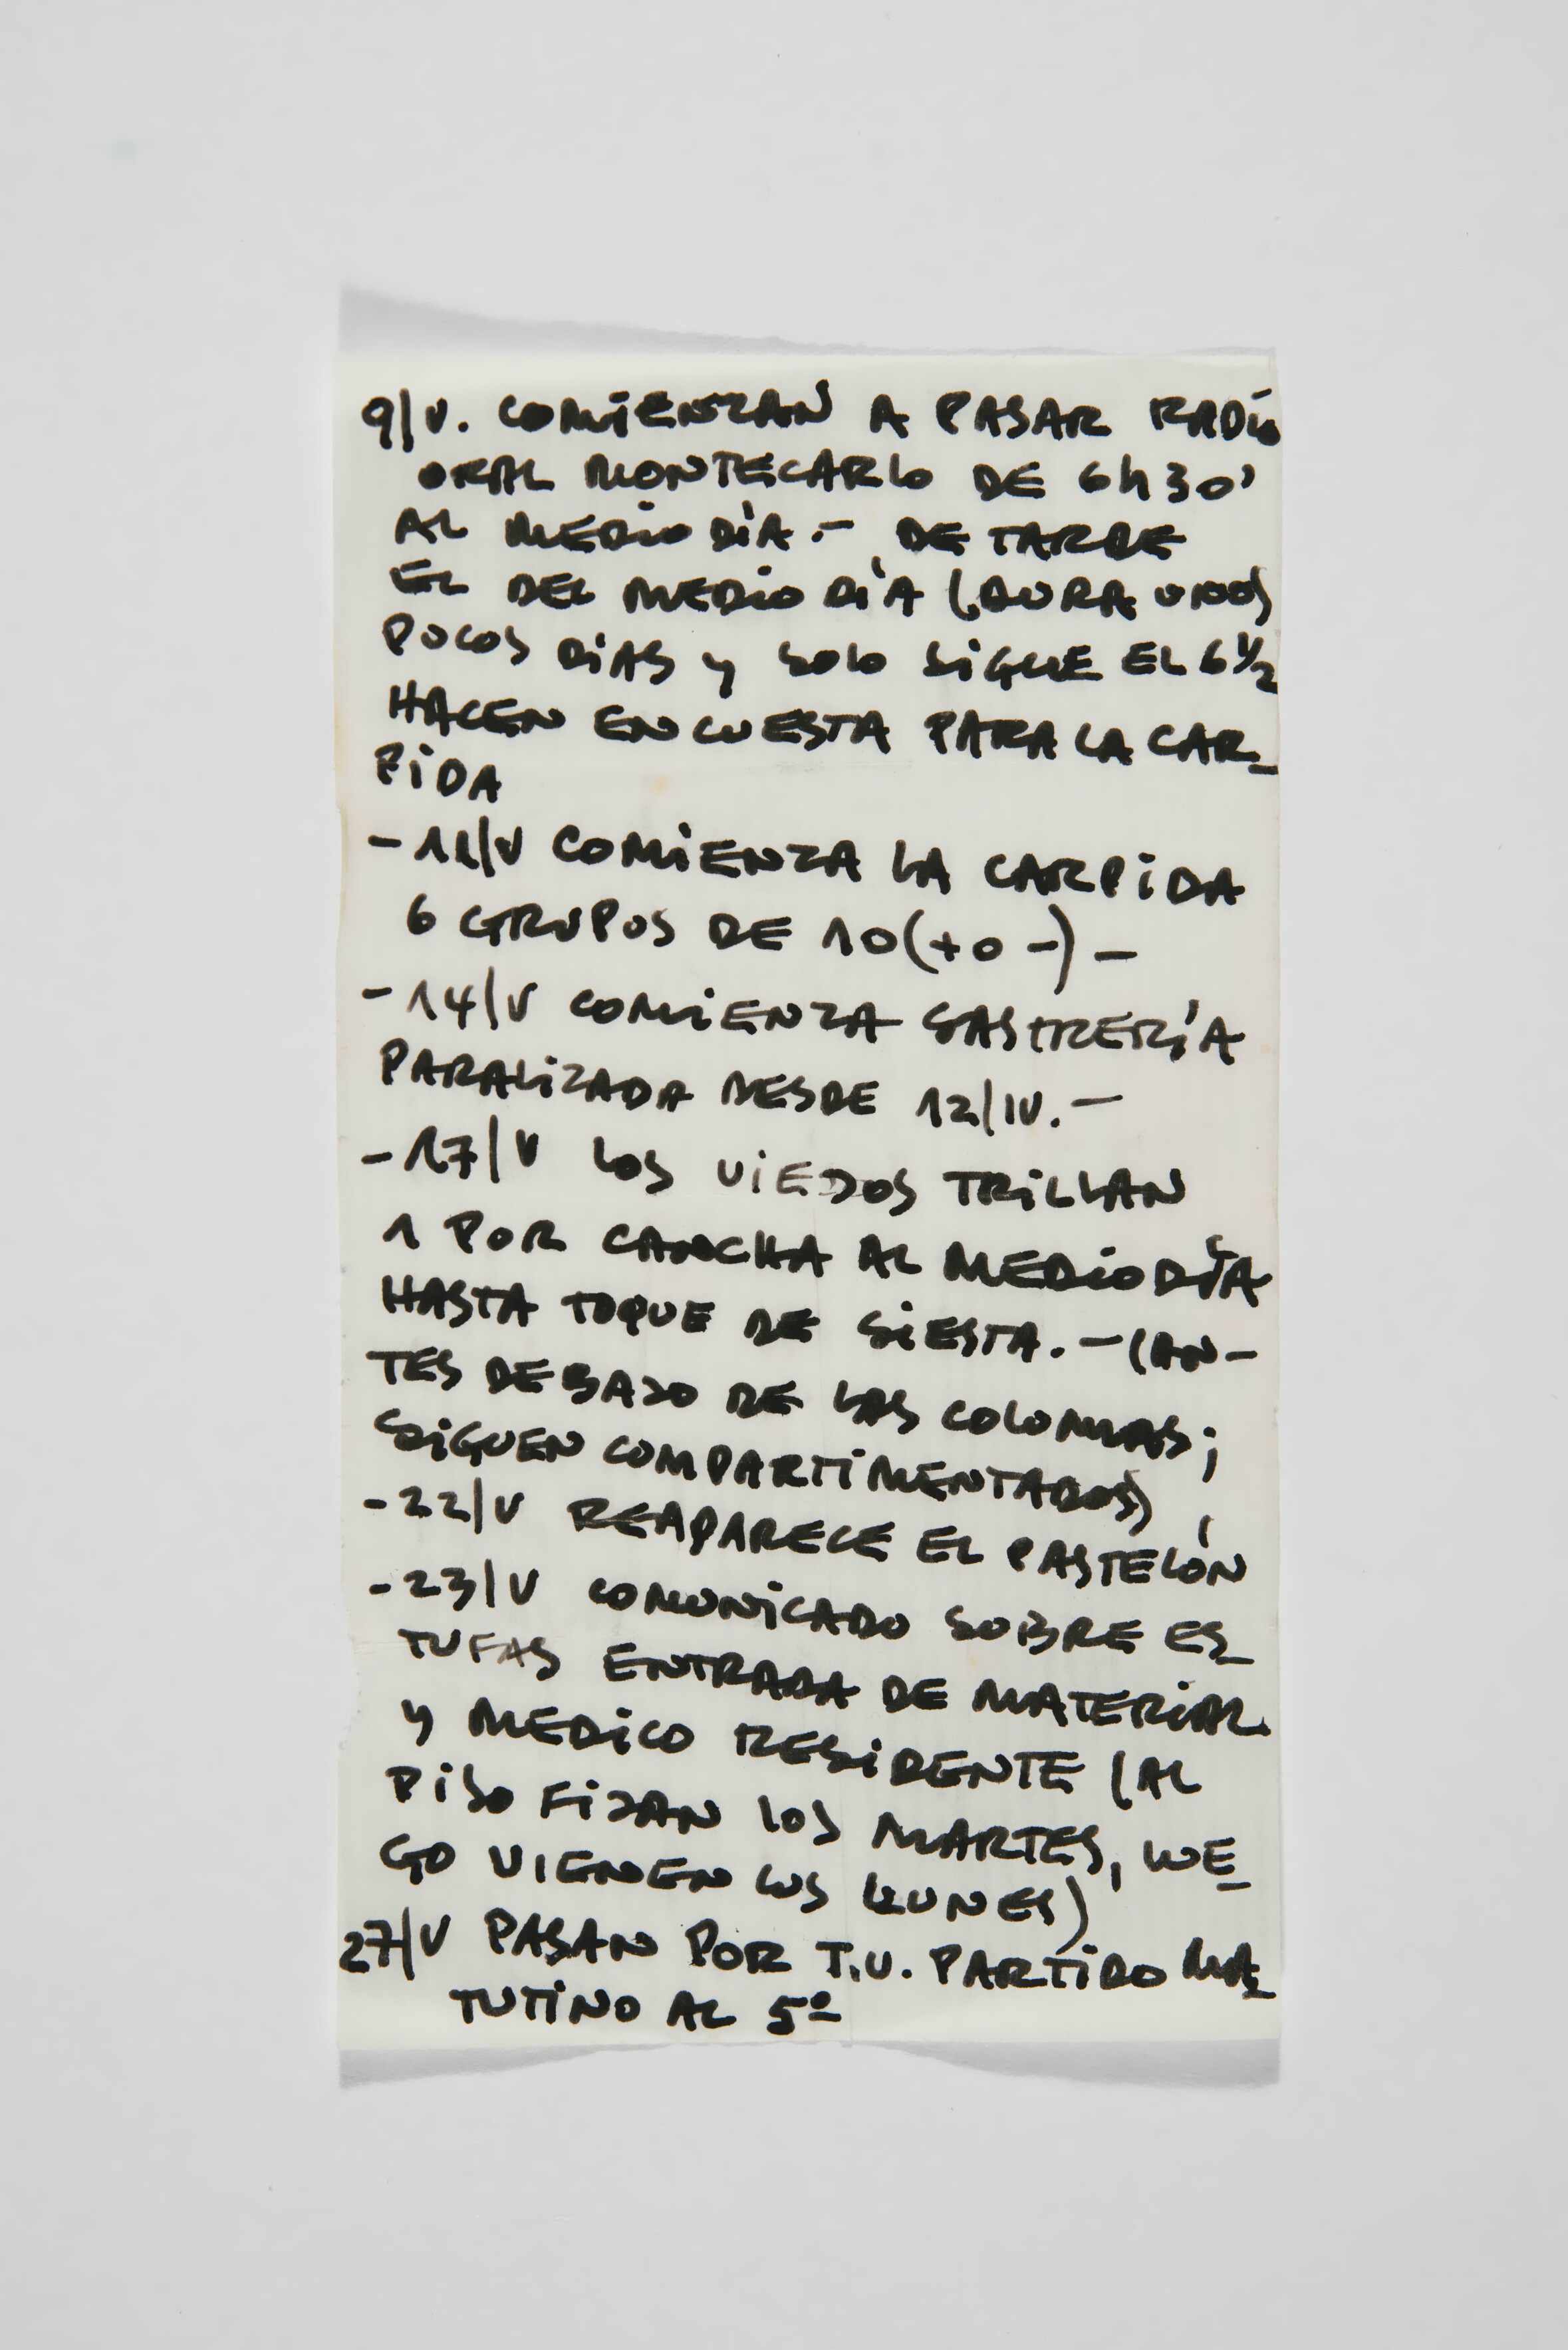 9/V. COMIENZAN A PASAR RADIO
ORAL MONTECARLO DE 6h30'
AL MEDIO DÍA.- DE TARDE
EL DEL MEDIO DÍA (DURA UNOS
POCOS DIAS Y SOLO SIGUE EL 6 1/2
HACEN ENCUESTA PARA LA CAR-
PIDA
- 11/V COMIENZA LA CARPIDA
6 GRUPOS DE 10 (+ o -) -
- 14/V COMIENZA SASTRERÍA
PARALIZADA DESDE 12/IV.-
- 17/V LOS VIEJOS TRILLAN
1 POR CANCHA AL MEDIO DÍA
HASTA TOQUE DE SIESTA. - (AN-
TES DEBAJO DE LAS COLOMNAS;
SIGUEN COMPARTIMENTADOS)
- 22/V REAPARECE EL PASTELÓN
- 23/V COMUNICADO SOBRE ES-
TUFAS ENTRADA DE MATERIAL
Y MEDICO RESIDENTE (AL
PISO FIJAN LOS MARTES, LUE-
GO VIENEN LOS LUNES)
27/V PASAN POR T.V. PARTIDO MA-
TUTINO AL 5º